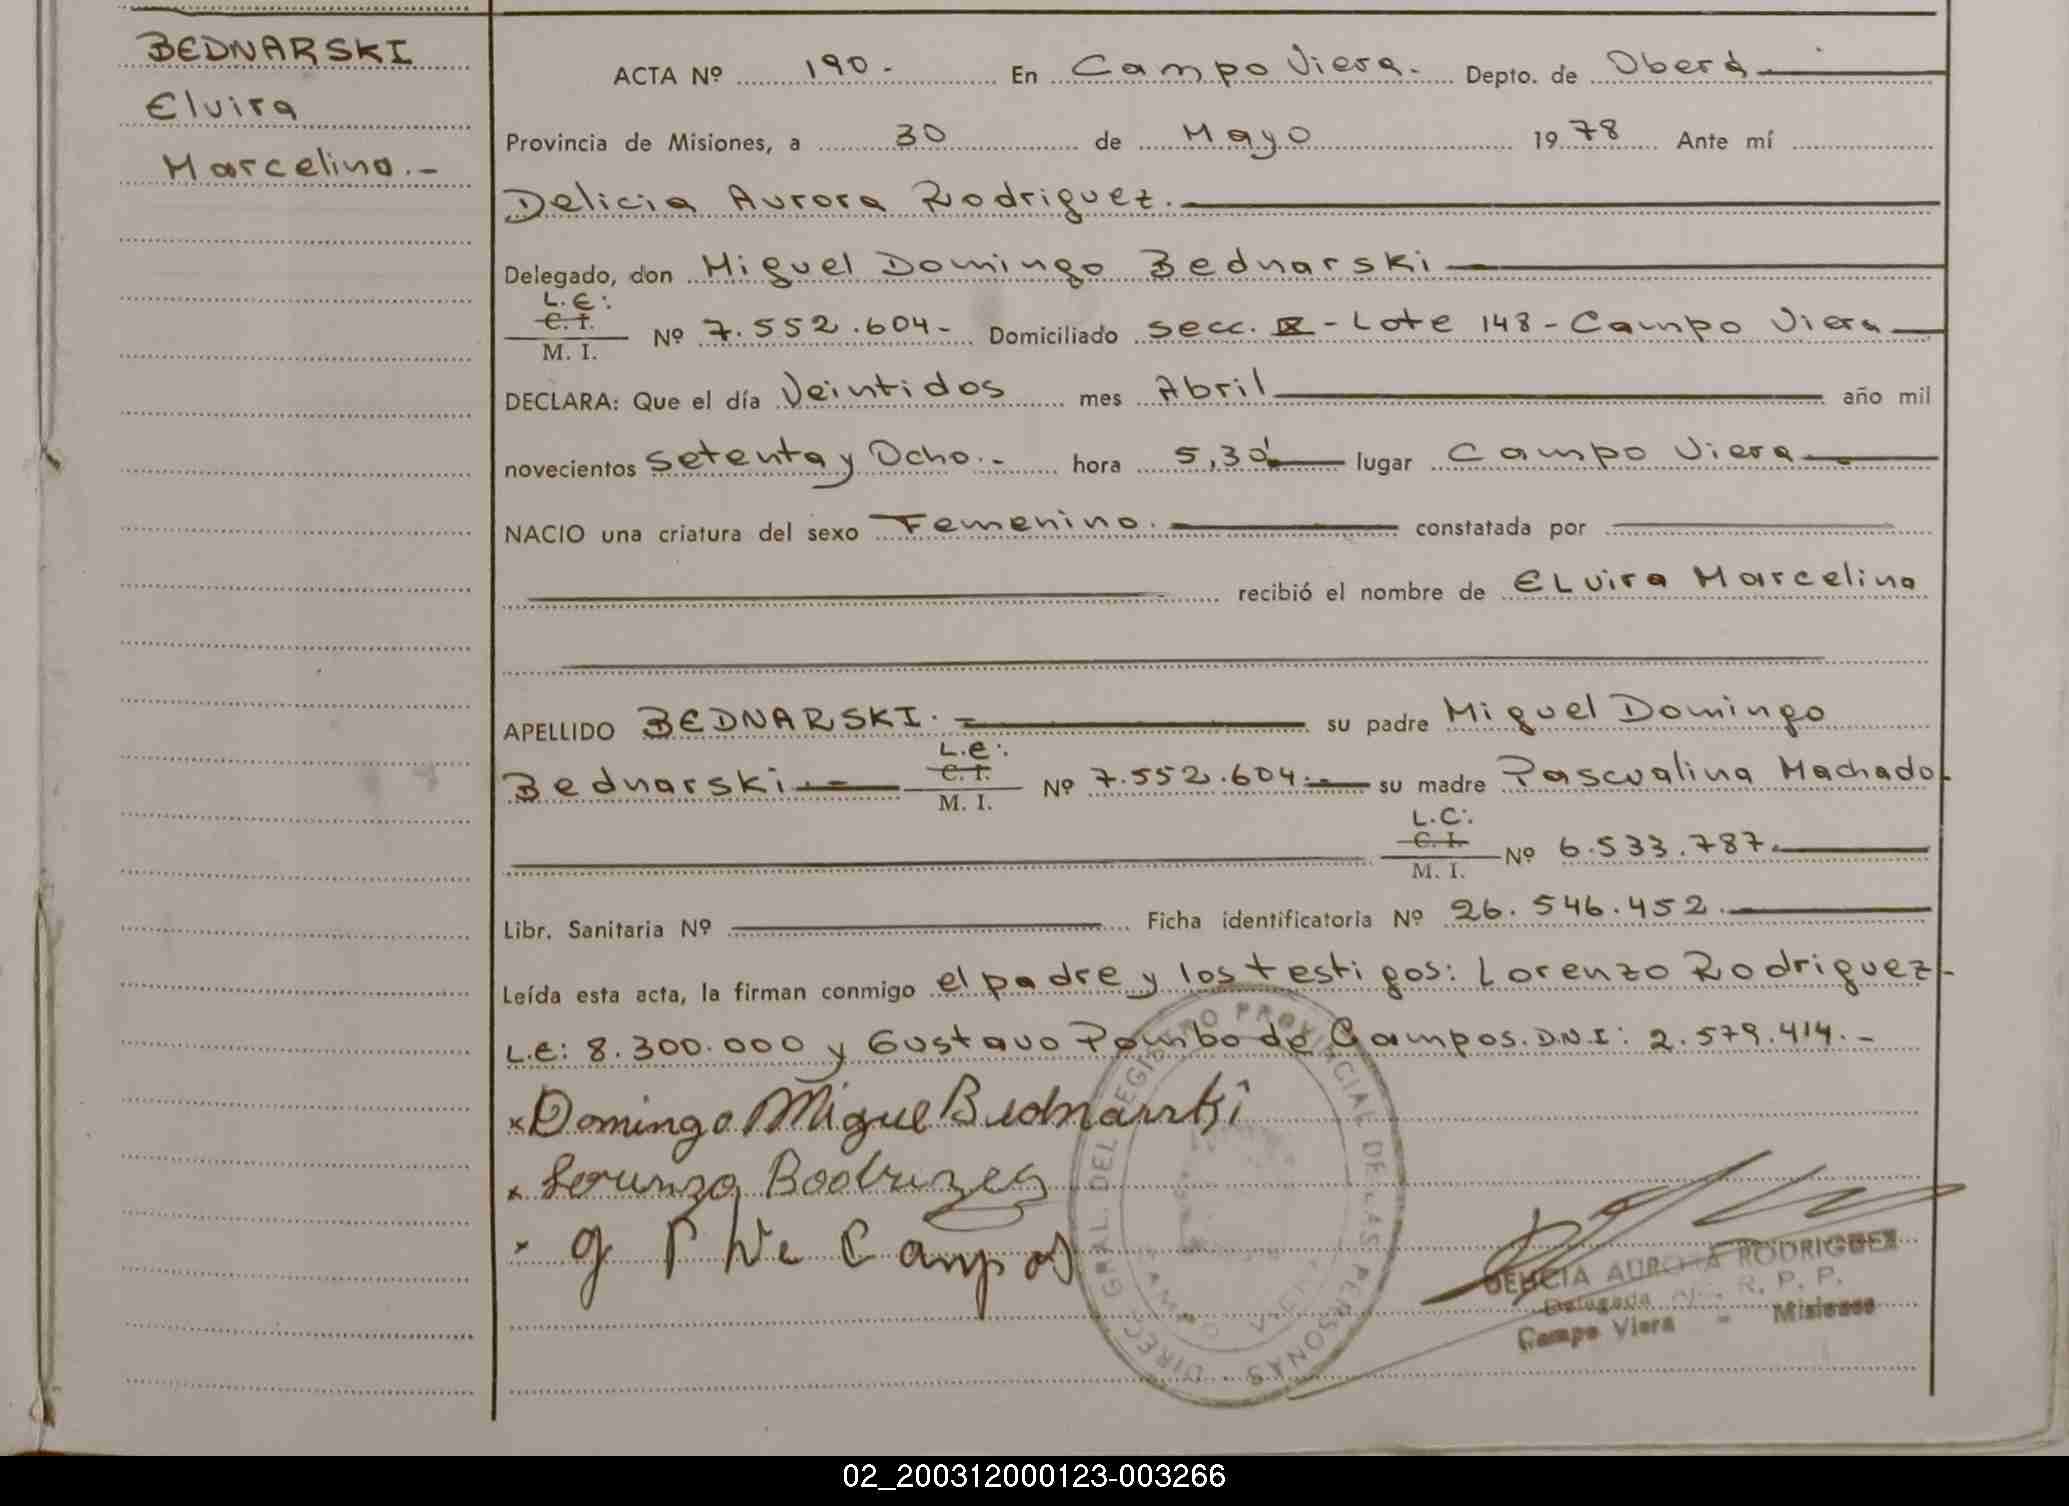 BEDNARSKI
Elvira
Marcelina.-
ACTA Nº 190.- En Campo Viera.- Depto. de Oberá
Provincia de Misiones, a 30 de Mayo 1978 Ante mí
Delicia Aurora Rodriguez.
Delegado, don Miguel Domingo Bednarski
L.E:
C. I.
M. I. Nº 7.552.604- Domiciliado secc. IX - Lote 148 - Campo Viera
DECLARA: Que el día Veintidos mes Abril año mil
novecientos setenta y Ocho.- hora 5,30' lugar Campo Viera
NACIO una criatura del sexo Femenino. constatada por
recibió el nombre de ELvira Marcelina
APELLIDO BEDNARSKI.- su padre Miguel Domingo
L.e:
C. I.
Bednarski.- M. I. Nº 7.552.604.- su madre Pascualina Machado-
L.C:
C. I.
M. I. Nº 6.533.787.
Libr. Sanitaria Nº Ficha identificatoria Nº 26.546.452.
Leída esta acta, la firman conmigo el padre y los testigos: Lorenzo Rodriguez-
L.E: 8.300.000 y Gustavo Pombo de Campos. D.N.I: 2.579.414.-
x Domingo Miguel Bednarski
x Lorenzo Rodriguez
x G P de Campos
DIREC. GRAL. DEL REGISTRO PROVINCIAL DE LAS PERSONAS
DELICIA AURORA RODRIGUEZ
Delegada R. P. P.
Campo Viera - Misiones
02_200312000123-003266